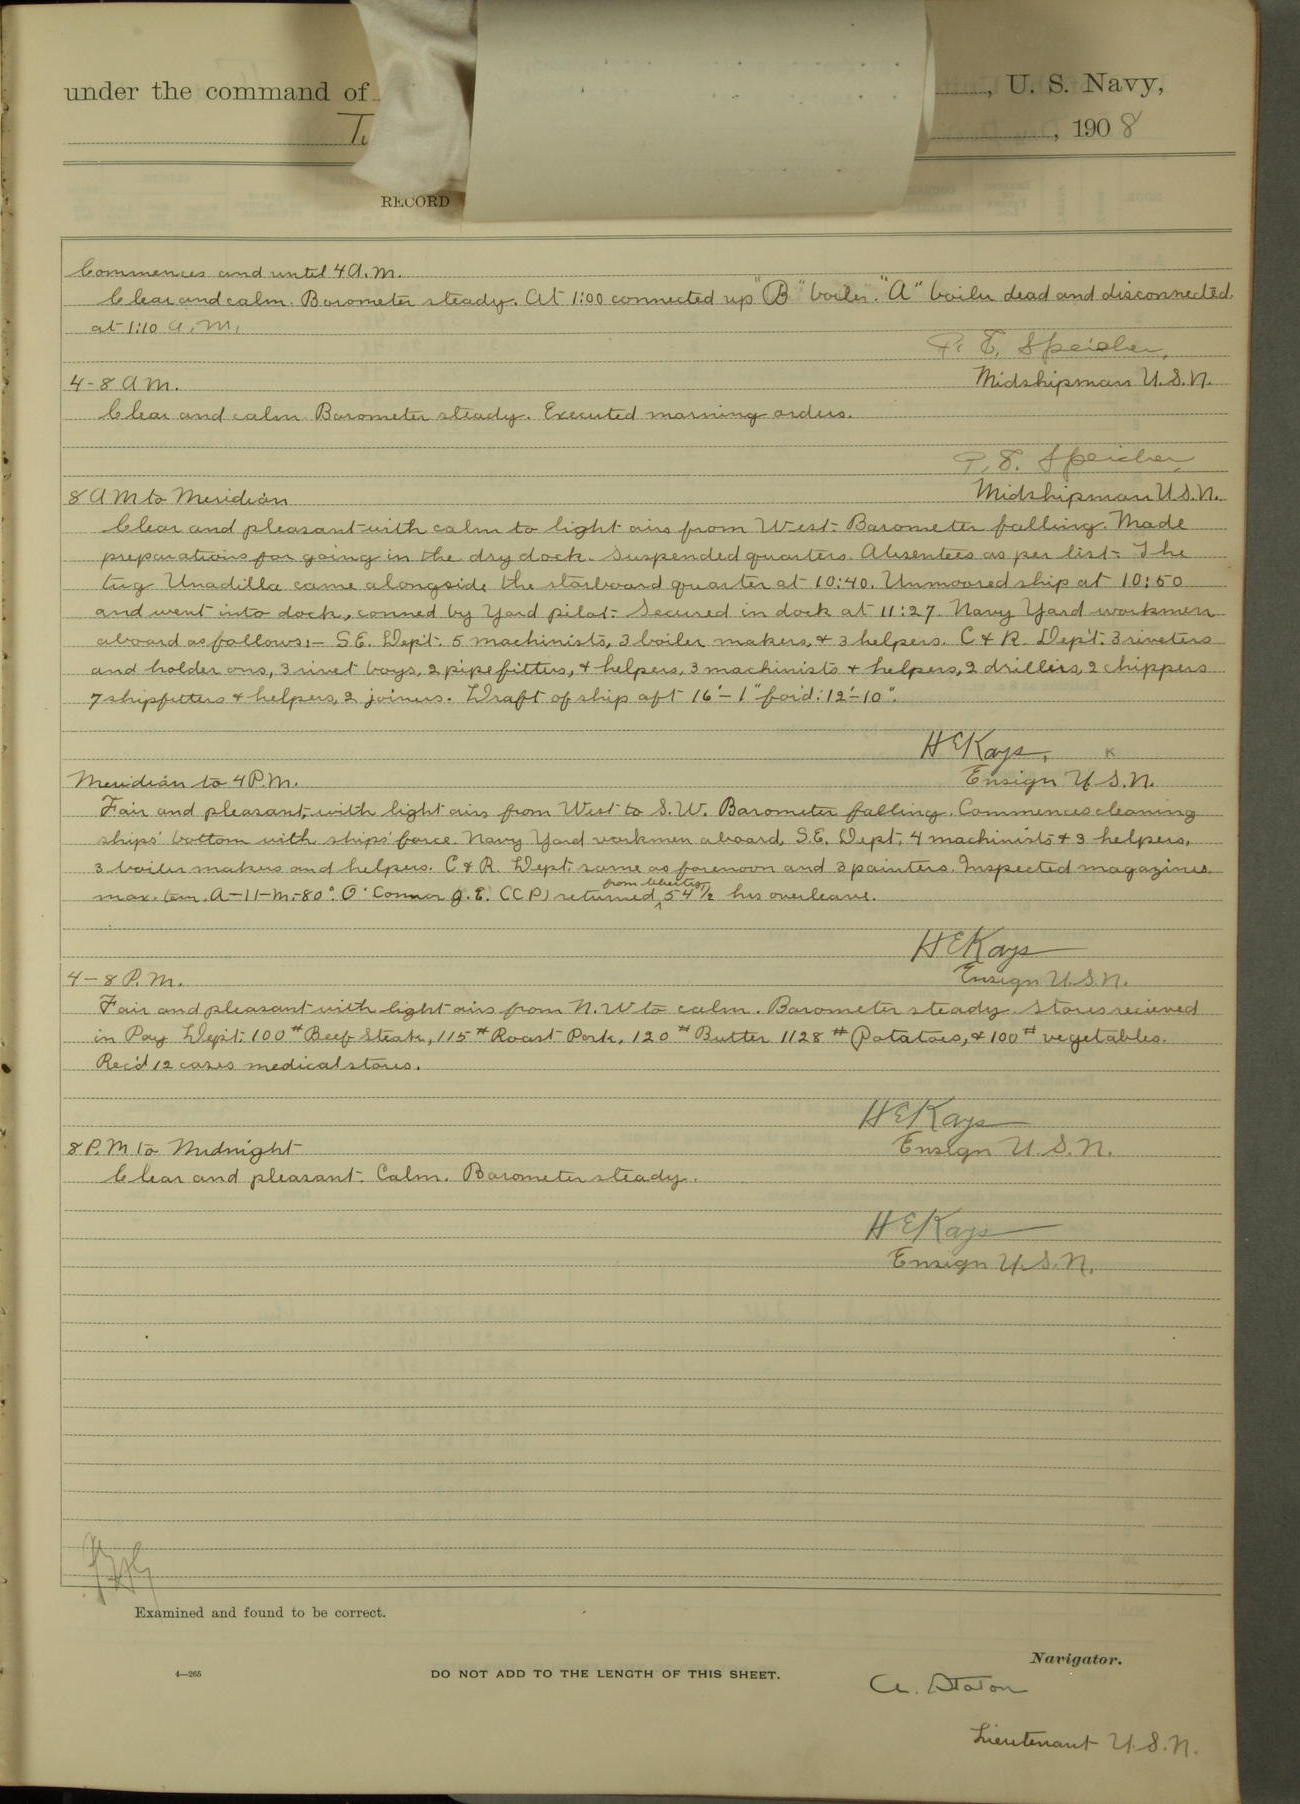 under the command of , U. S. Navy,
, 1908
RECORD
Commences and until 4 A.M.
Clear and calm. Barometer steady. At 1:00 connected up "B" boiler. "A" boiler dead and disconnected
at 1:10 A.M.
P. E. Speicher,
4-8 A M. Midshipman U.S.N.
Clear and calm Barometer steady. Executed morning orders.
P. E. Speicher
8 A M to Meridian Midshipman U.S.N.
Clear and pleasant with calm to light airs from West. Barometer falling. Made
preparations for going in the dry dock. Suspended quarters. Absentees as per list. The
tug Unadilla came alongside the starboard quarter at 10:40. Unmoored ship at 10:50
and went into dock, conned by Yard pilot. Secured in dock at 11:27. Navy Yard workmen
aboard as follows:- S.E. Dep't. 5 machinists, 3 boiler makers, & 3 helpers. C & R. Dep't. 3 riveters
and holder ons, 3 rivet boys, 2 pipefitters, & helpers, 3 machinists & helpers, 2 drillers, 2 chippers
7 shipfitters & helpers, 2 joiners. Draft of ship aft 16'-1" for'd: 12'-10".
H E Kays, K
Meridian to 4 P.M. Ensign U.S.N.
Fair and pleasant, with light airs from West to S.W. Barometer falling. Commences cleaning
ships' bottom with ships' force. Navy Yard workmen aboard, S.E. Dept. 4 machinists & 3 helpers,
3 boiler makers and helpers. C & R. Dept. same as forenoon and 3 painters. Inspected magazines
max. tem. A-11-M-80°. O'Connor J. E. (C P) returned from liberty 54 1/2 hrs overleave.
H E Kays
4-8 P. M. Ensign U.S.N.
Fair and pleasant with light airs from N.W to calm. Barometer steady. Stores recieved
in Pay Dep't: 100 # Beef Steak, 115 # Roast Pork, 120 # Butter 1128 # Potatoes, & 100 # vegetables.
Rec'd 12 cases medical stores.
H E Kays
8 P. M to Midnight Ensign U.S.N.
Clear and pleasant. Calm. Barometer steady.
H E Kays
Ensign U.S.N.
Examined and found to be correct.
Navigator.
4—265 DO NOT ADD TO THE LENGTH OF THIS SHEET.
A. Staton
Lieutenant U.S.N.